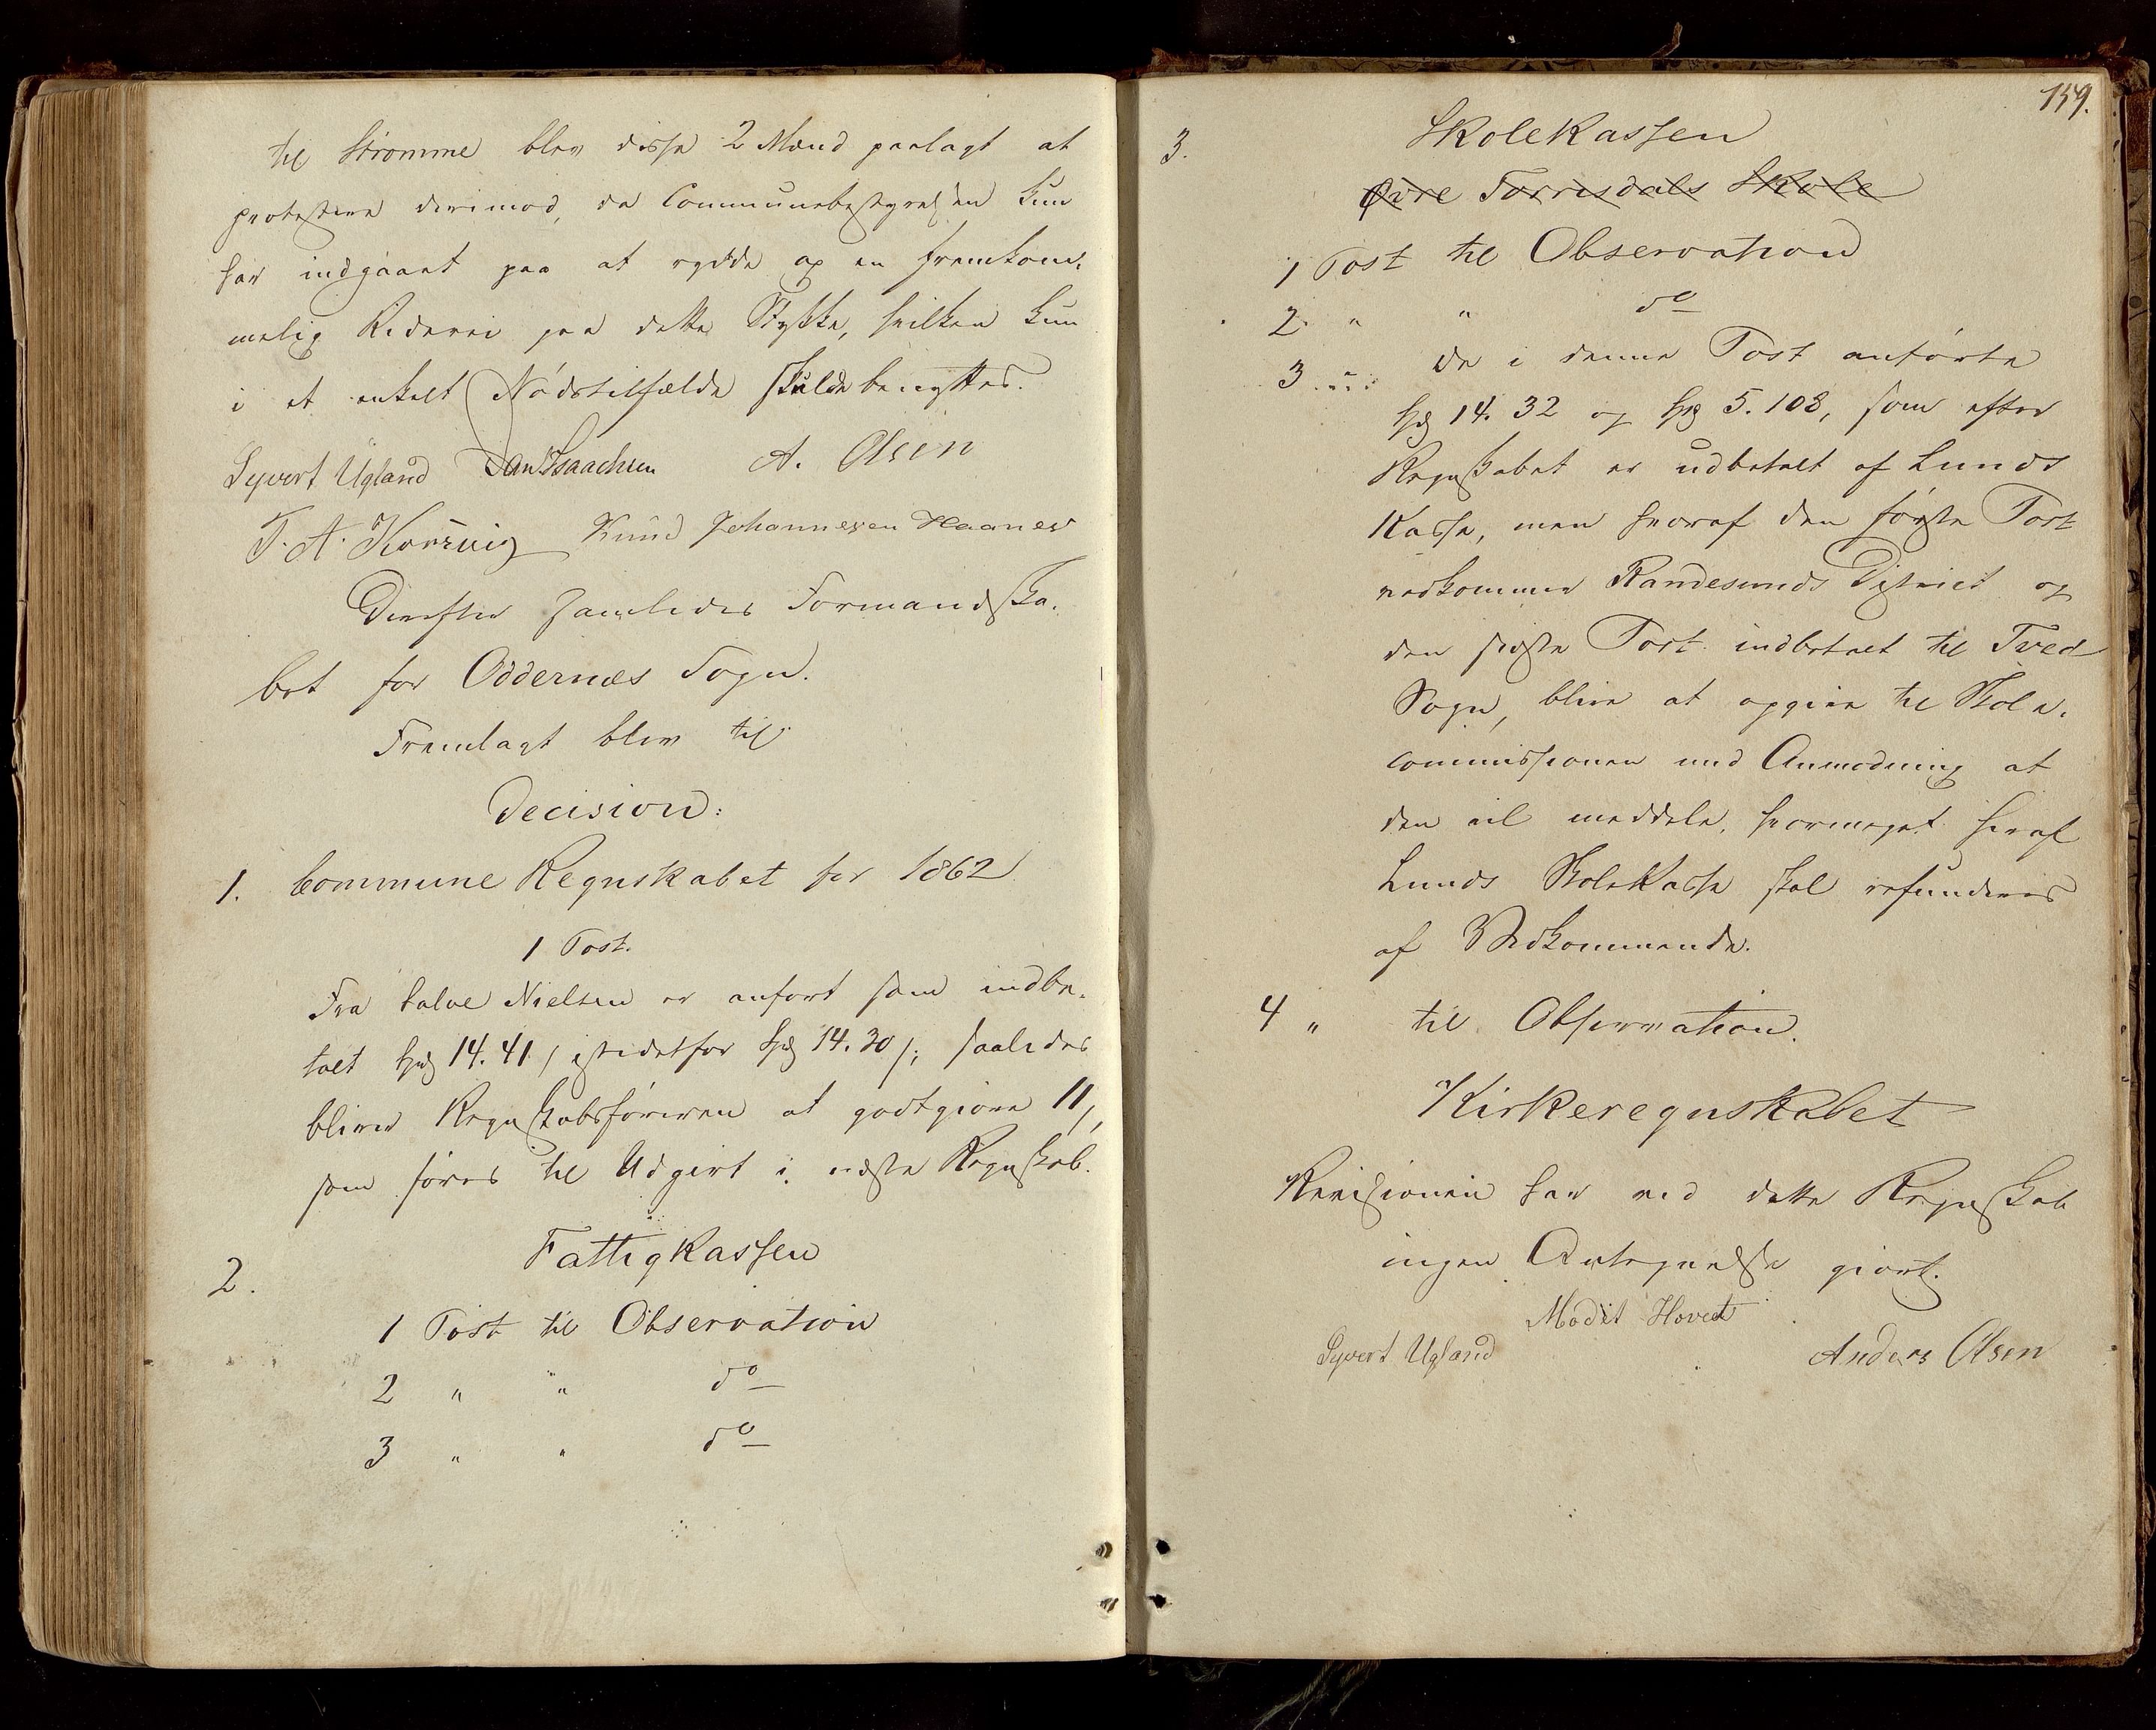 til Strømme blev disse 2 Mænd paalagt at
protestere derimod, da Communebestyrelsen kun
har indgaaet paa at rydde op en fremkom-
melig Ridevei paa dette Stykke, hvilken kun
i et enkelt Nødstilfælde skulde benyttes.
Syvert Ugland Dan Isaachsen A. Olsen
T. A. Korsvig Knud Johannesen Haanes
Derefter samledes Formandska-
bet for Oddernæs Sogn.
Fremlagt blev til
Decision:
1. Commune Regnskabet for 1862
1 Post.
Fra Salve Nielsen er anført som indbe-
talt Spd 14. 41 / istedetfor Spd 14. 30 /; saaledes
bliver Regnskabsføreren at godtgiøre 11 /,
som føres til Udgivt i næste Regnskab.
2. Fattigkassen
1 Post til Observation
2 " " do
3 " " do
159.
3. Skolekassen
Øvre Torrisdals Skole
1 Post til Observation
2 " " do
3 " " de i denne Post anførte
Spd 14. 32 og Spd 5. 108, som efter
Regnskabet er udbetalt af Lunds
Kasse, men hvoraf den første Post
vedkommer Randesunds District og
den sidste Post indbetalt til Tved
Sogn, blive at opgive til Skole-
commissionen med Anmodning at
den vil meddele, hvormeget heraf
Lunds Skolekasse skal refunderes
af Vedkommende.
4 " til Observation.
Kirkeregnskabet
Revisionen har ved dette Regnskab
ingen Antegnelse giort.
Hovedt
Syvert Ugland Anders Olsen